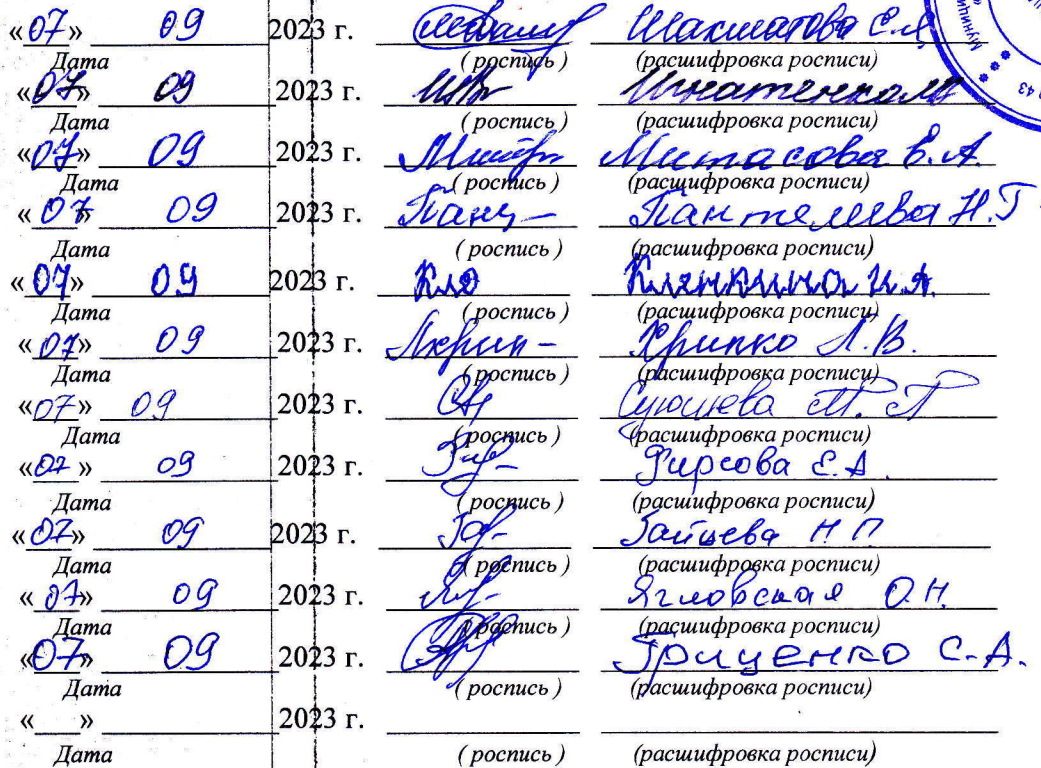 «07» 09 2023 г. Шахматова Е.Я
Дата (роспись) (расшифровка росписи)
«07» 09 2023 г. Игнатенко
Дата (роспись) (расшифровка росписи)
«07» 09 2023 г. Митасова Е.А.
Дата (роспись) (расшифровка росписи)
«07» 09 2023 г. Пантелеева Н.Г
Дата (роспись) (расшифровка росписи)
«07» 09 2023 г. Клянкина И.А.
Дата (роспись) (расшифровка росписи)
«07» 09 2023 г. Хрипко Л.В.
Дата (роспись) (расшифровка росписи)
«07» 09 2023 г.
Дата (роспись) (расшифровка росписи)
«07» 09 2023 г. Фирсова Е.А.
Дата (роспись) (расшифровка росписи)
«07» 09 2023 г. Н П
Дата (роспись) (расшифровка росписи)
«07» 09 2023 г. Ягловская О.Н.
Дата (роспись) (расшифровка росписи)
«07» 09 2023 г. Гриценко С.А.
Дата (роспись) (расшифровка росписи)
« » 2023 г.
Дата (роспись) (расшифровка росписи)